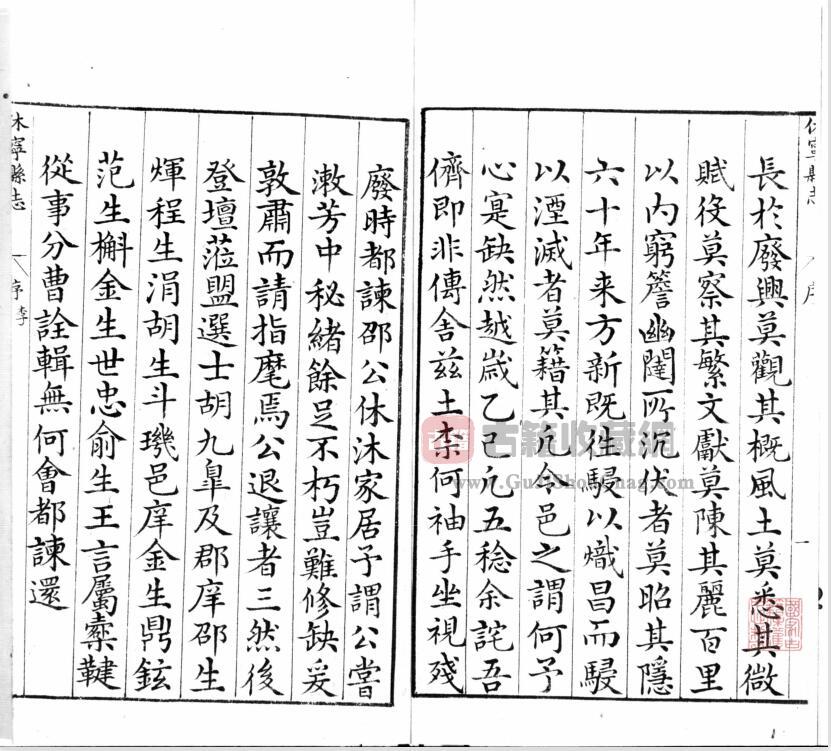 休寧縣志
序
長於廢興莫觀其概風土莫悉其微
賦役莫察其繁文獻莫陳其麗百里
以内窮簷幽闥所沉伏者莫昭其隱
六十年来方新既往駸以熾昌而駸
以湮滅者莫籍其凢今邑之謂何予
心寔缺然越歳乙巳凢五稔余詫吾
儕即非傳舍兹土柰何袖手坐視殘
廢時都諫邵公休沐家居予謂公嘗
漱芳中秘緒餘足不朽豈難修缺爰
敦肅而請指麾焉公退讓者三然後
登壇蒞盟選士胡九臯及郡庠邵生
煇程生涓胡生斗璣邑庠金生鼎鉉
范生檞金生世忠俞生王言屬橐鞬
從事分曹詮輯無何會都諫還
休寧縣志
序 李
古籍收藏網